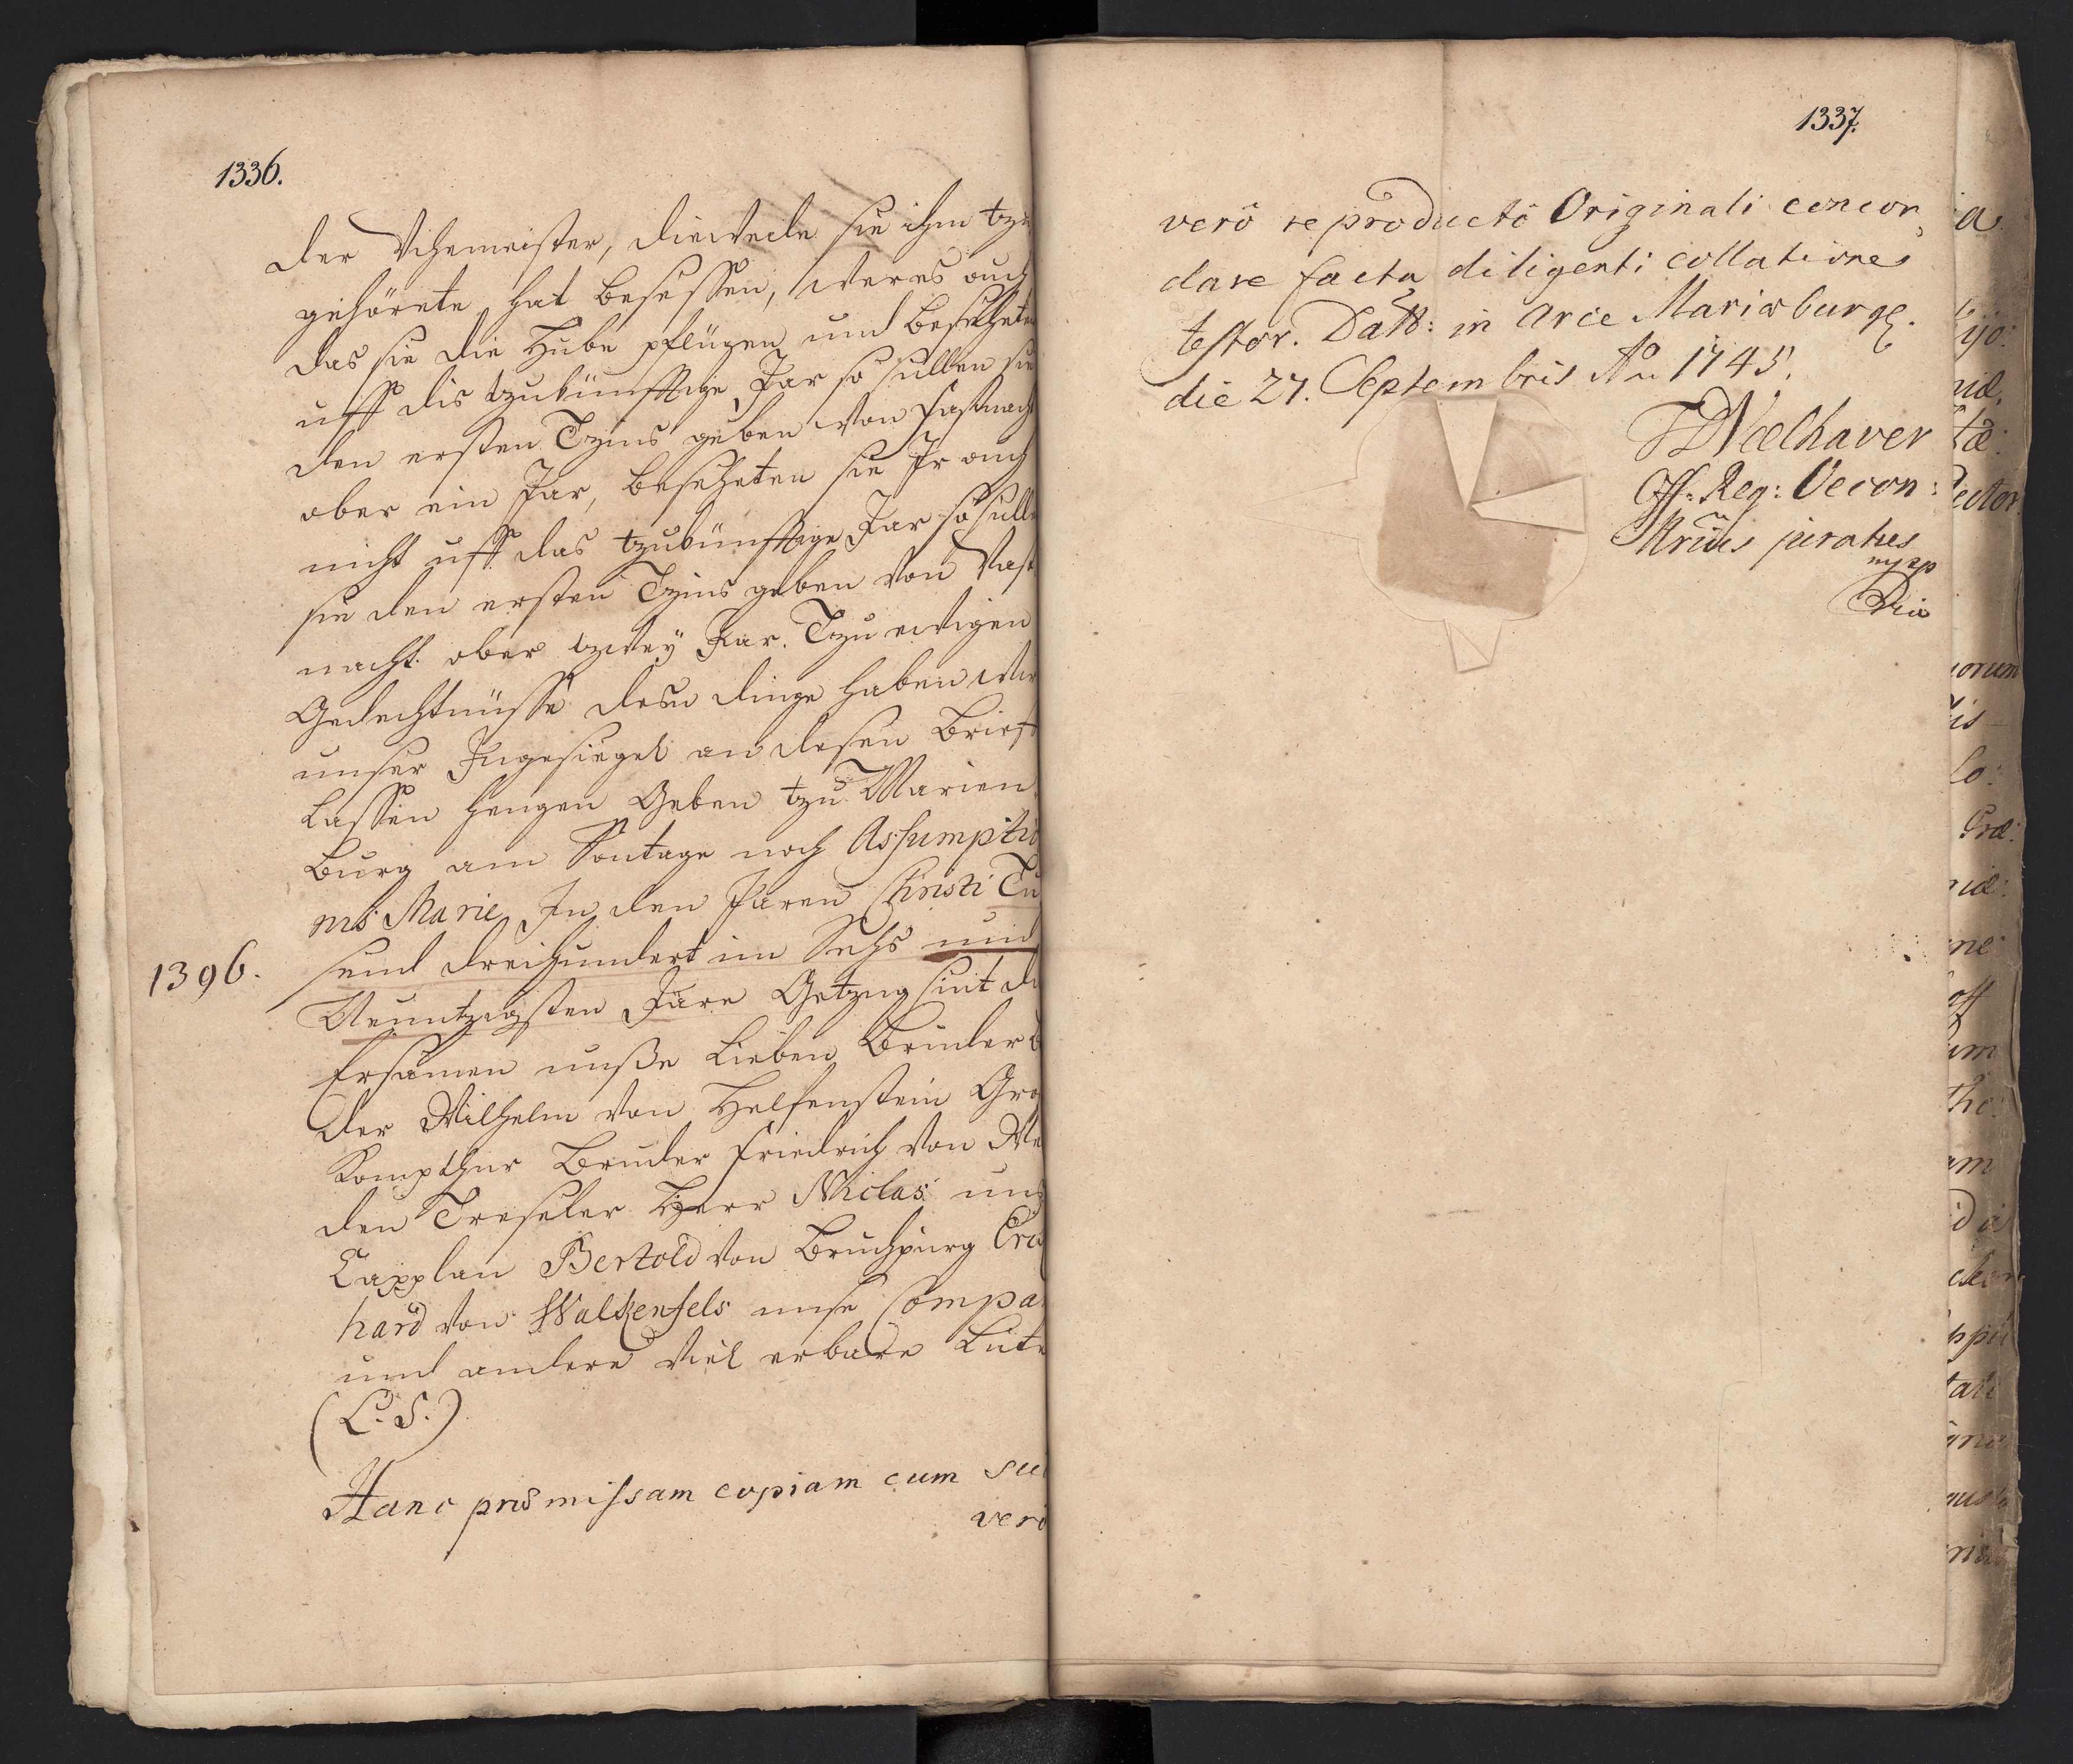 1336.
der Vihemeister, dieweile sie ihm tzu
gehörete, hat besessen, wer es ouch
das sie die Hube pflügen und besehete
uff dis tzukünfftige Jar so sullen sie
den ersten Tzins geben von Fastnacht
ober ein Jar, beseheten sie Jr ouch
nicht uff das tzukünfftige Jar so sulle
sie den ersten Tzins geben von Vast
nacht ober tzwey Jar. Tzu ewigen
Gedechtnüsse desir dinge haben wir
unser Ingesiegel an desen Brieff
lassen hengen Geben tzu Marien
Burg am Sontage noch Assumptio
nis Marie, In den Jaren Christi Tu
send dreihundert im Sechs und
1396.
Neuntzigsten Jare Getzug sint di
Ersamen unße Lieben Bruder B
der Wilhelm von Helfenstein Gros
Kompthur Bruder Friedrich von We
den Treseler Herr Niclas uns
Capplan Bertold von Bruchpurg Er
hard von Walkenfels unse Compa
und andere viel erbare Lute
(L. S.)
Hanc præmissam copiam cum suo
verò
1337.
verò reproductô Originali concor
dare facta diligenti collatione
testor. Datt: in Arce Mariæburg.
die 27. Septembris Ao 1745.
Wœlhaver
Off: Reg: Oecon:
Mriæs juratus
mpp
ria